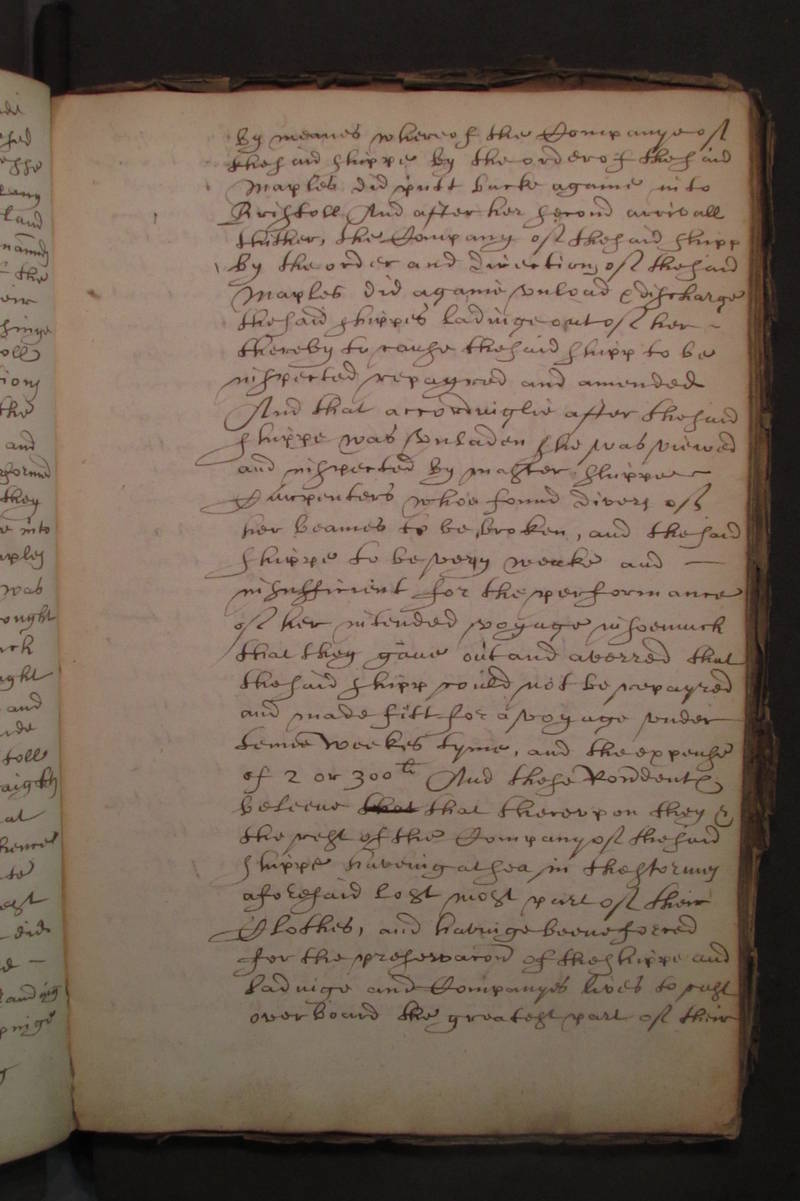 by meanes whereof the Companye of
the said shippe by the order of the said
Maples did putt backe againe into
Bristoll And after her second arrivall
thither, the Company of the said shipp
by the order and direction of the said
Maples did againe unload & discharge
the said shippes ladinge out of her ~
thereby to cause the said shipp to be
inspected repayred and amended
And that accordinglie after the said
shippe was vnladen she was viewed
and inspected by master shippe
Carpenters whoe found divers of
her beames to be broken, and the said
shippe to be very weake and —
insufficient for the performance
of her intended voyage insoemuch
that they gaue out and averred that
the said shipp could not be repayred
and made fitt for a voyage vnder
tenne weekes tyme, and the expense
of 2 or 300li And these Rondents
beleeve that that therevpon they &
the rest of the Company of the said
shippe haveing at sea in the stormes
aforesaid lost most part of their
Clothes, and havinge beene forced
for the preservacon of the shippe and
ladinge and Companyes lives to cast
over board the greatest part of their